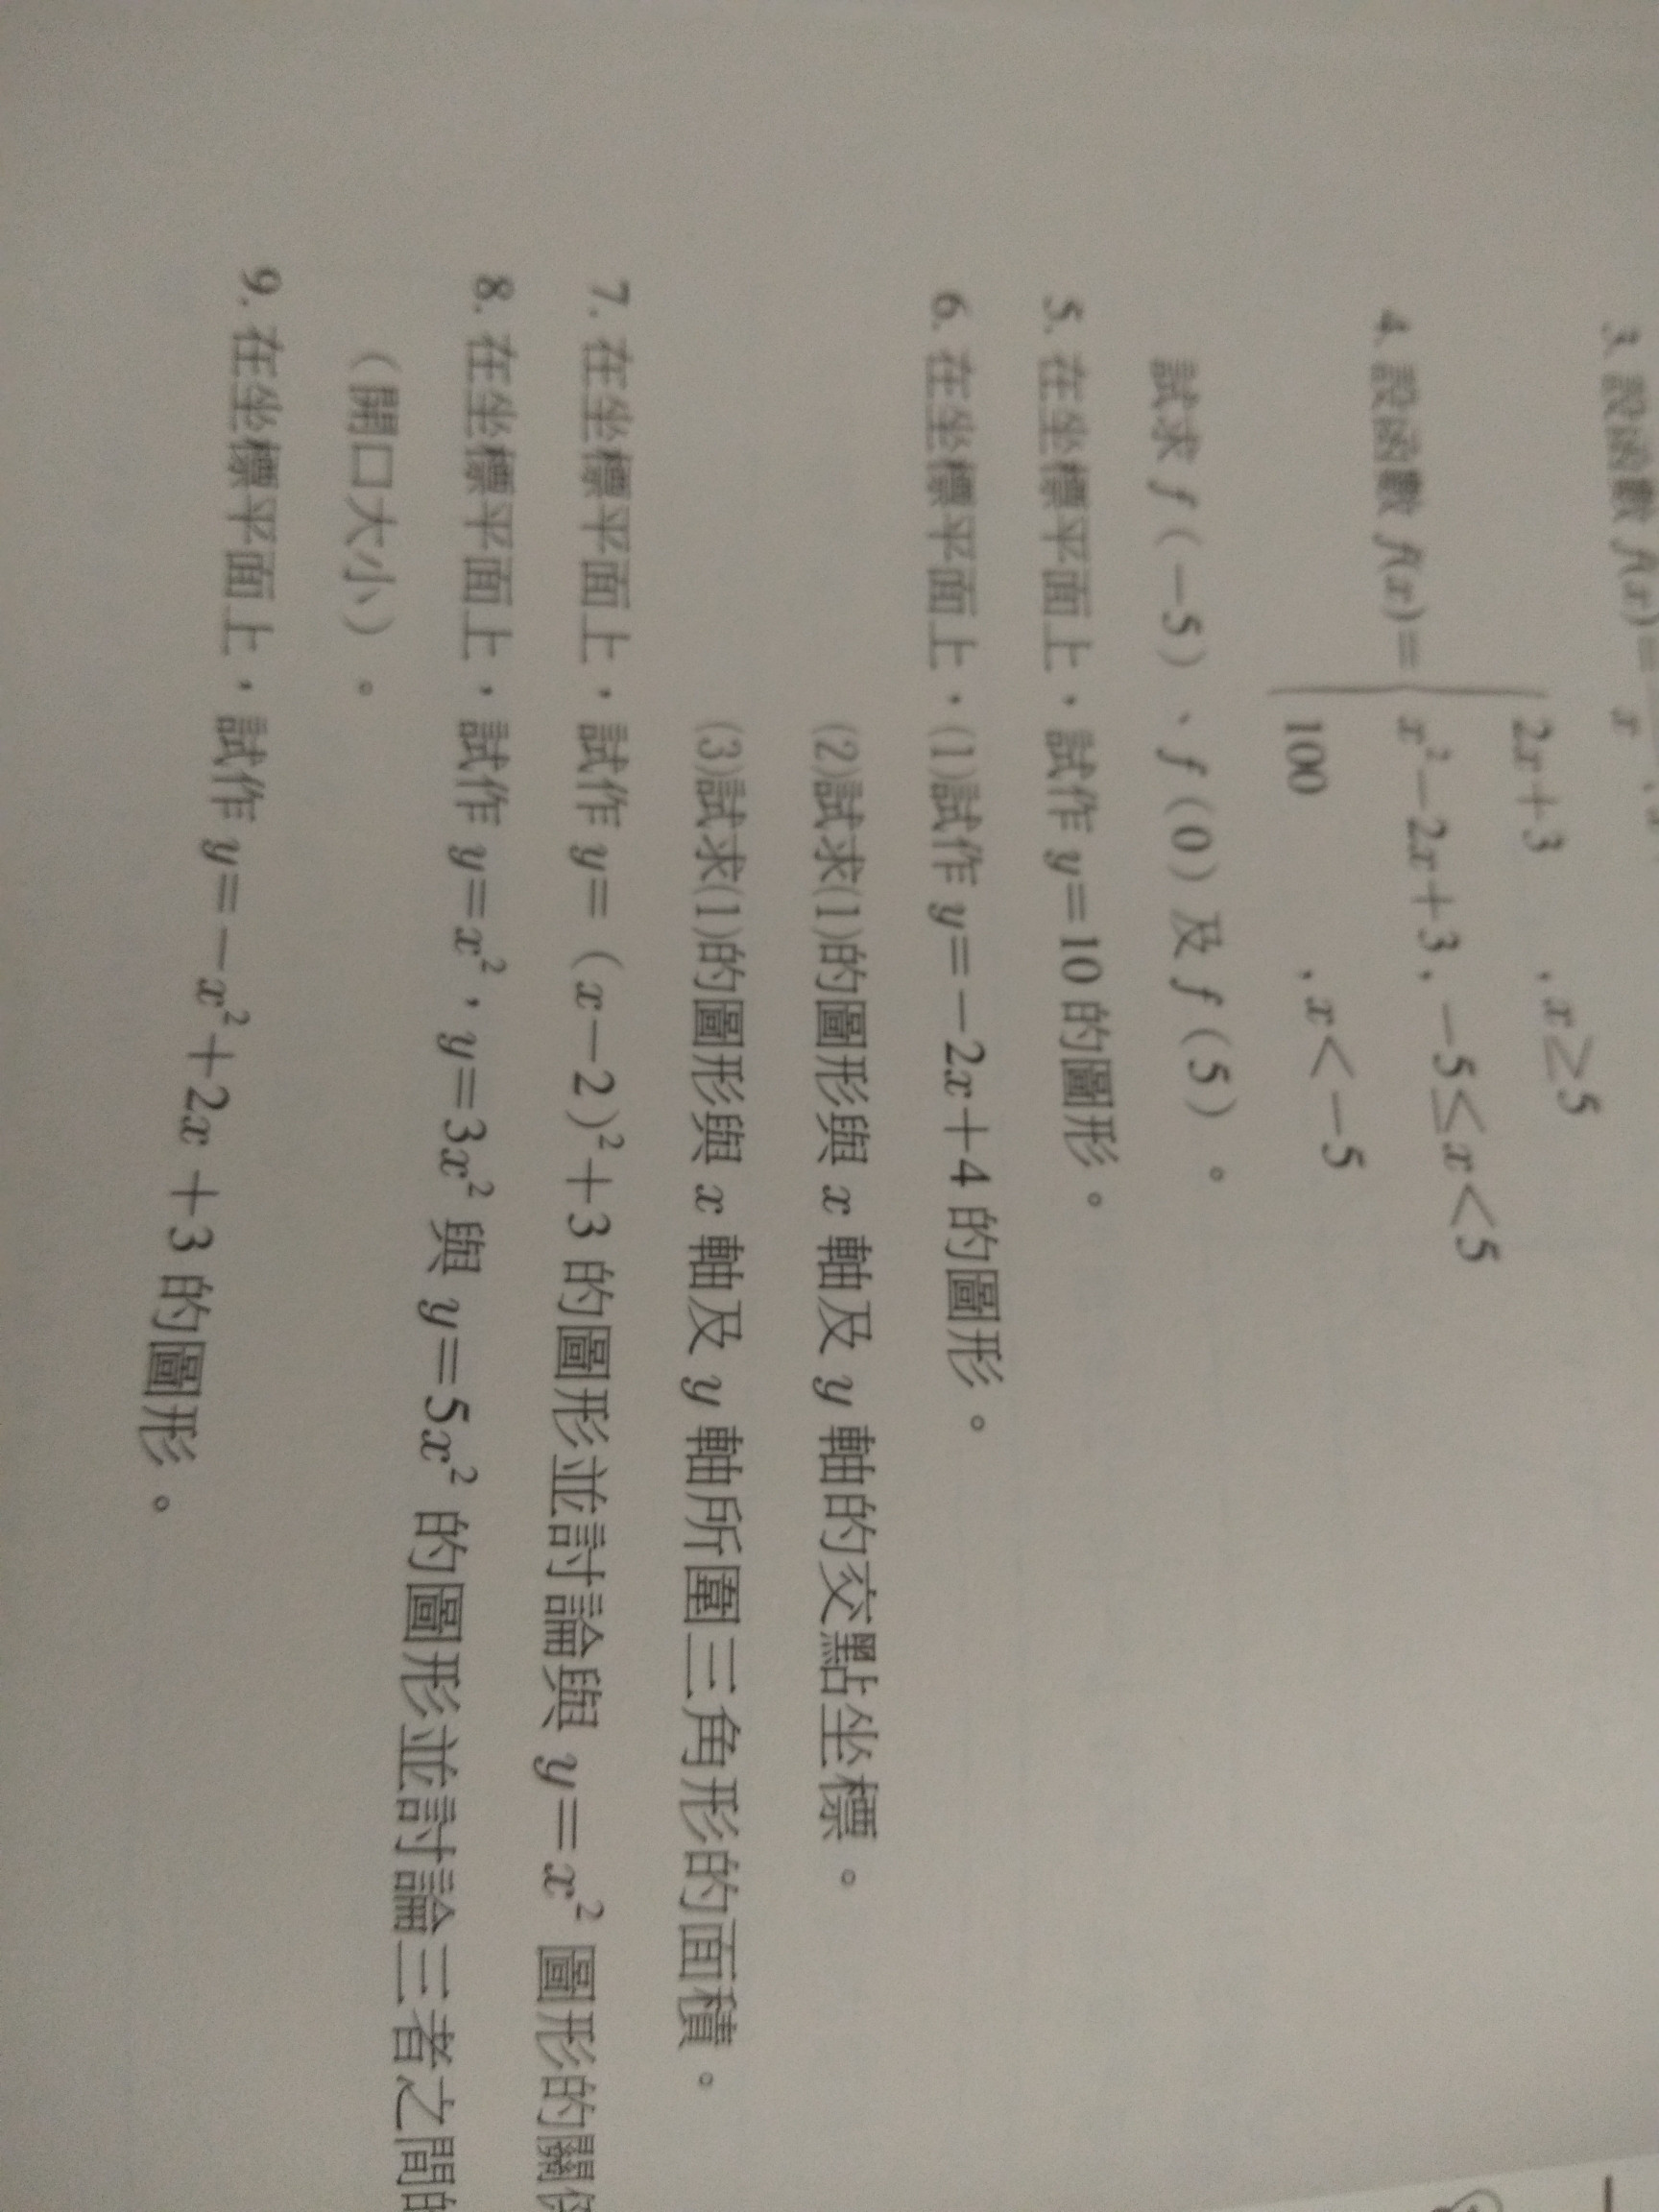 3. 設函數 f(x)=
x
4. 設函數 f(x)= { 2x+3 , x≥5
x²−2x+3 , −5≤x<5
100 , x<−5
試求 f（−5）、f（0）及 f（5）。
5. 在坐標平面上，試作 y=10 的圖形。
6. 在坐標平面上，(1)試作 y=−2x+4 的圖形。
(2)試求(1)的圖形與 x 軸及 y 軸的交點坐標。
(3)試求(1)的圖形與 x 軸及 y 軸所圍三角形的面積。
7. 在坐標平面上，試作 y=（x−2）²+3 的圖形並討論與 y=x² 圖形的關係
8. 在坐標平面上，試作 y=x²，y=3x² 與 y=5x² 的圖形並討論三者之間的
（開口大小）。
9. 在坐標平面上，試作 y=−x²+2x+3 的圖形。